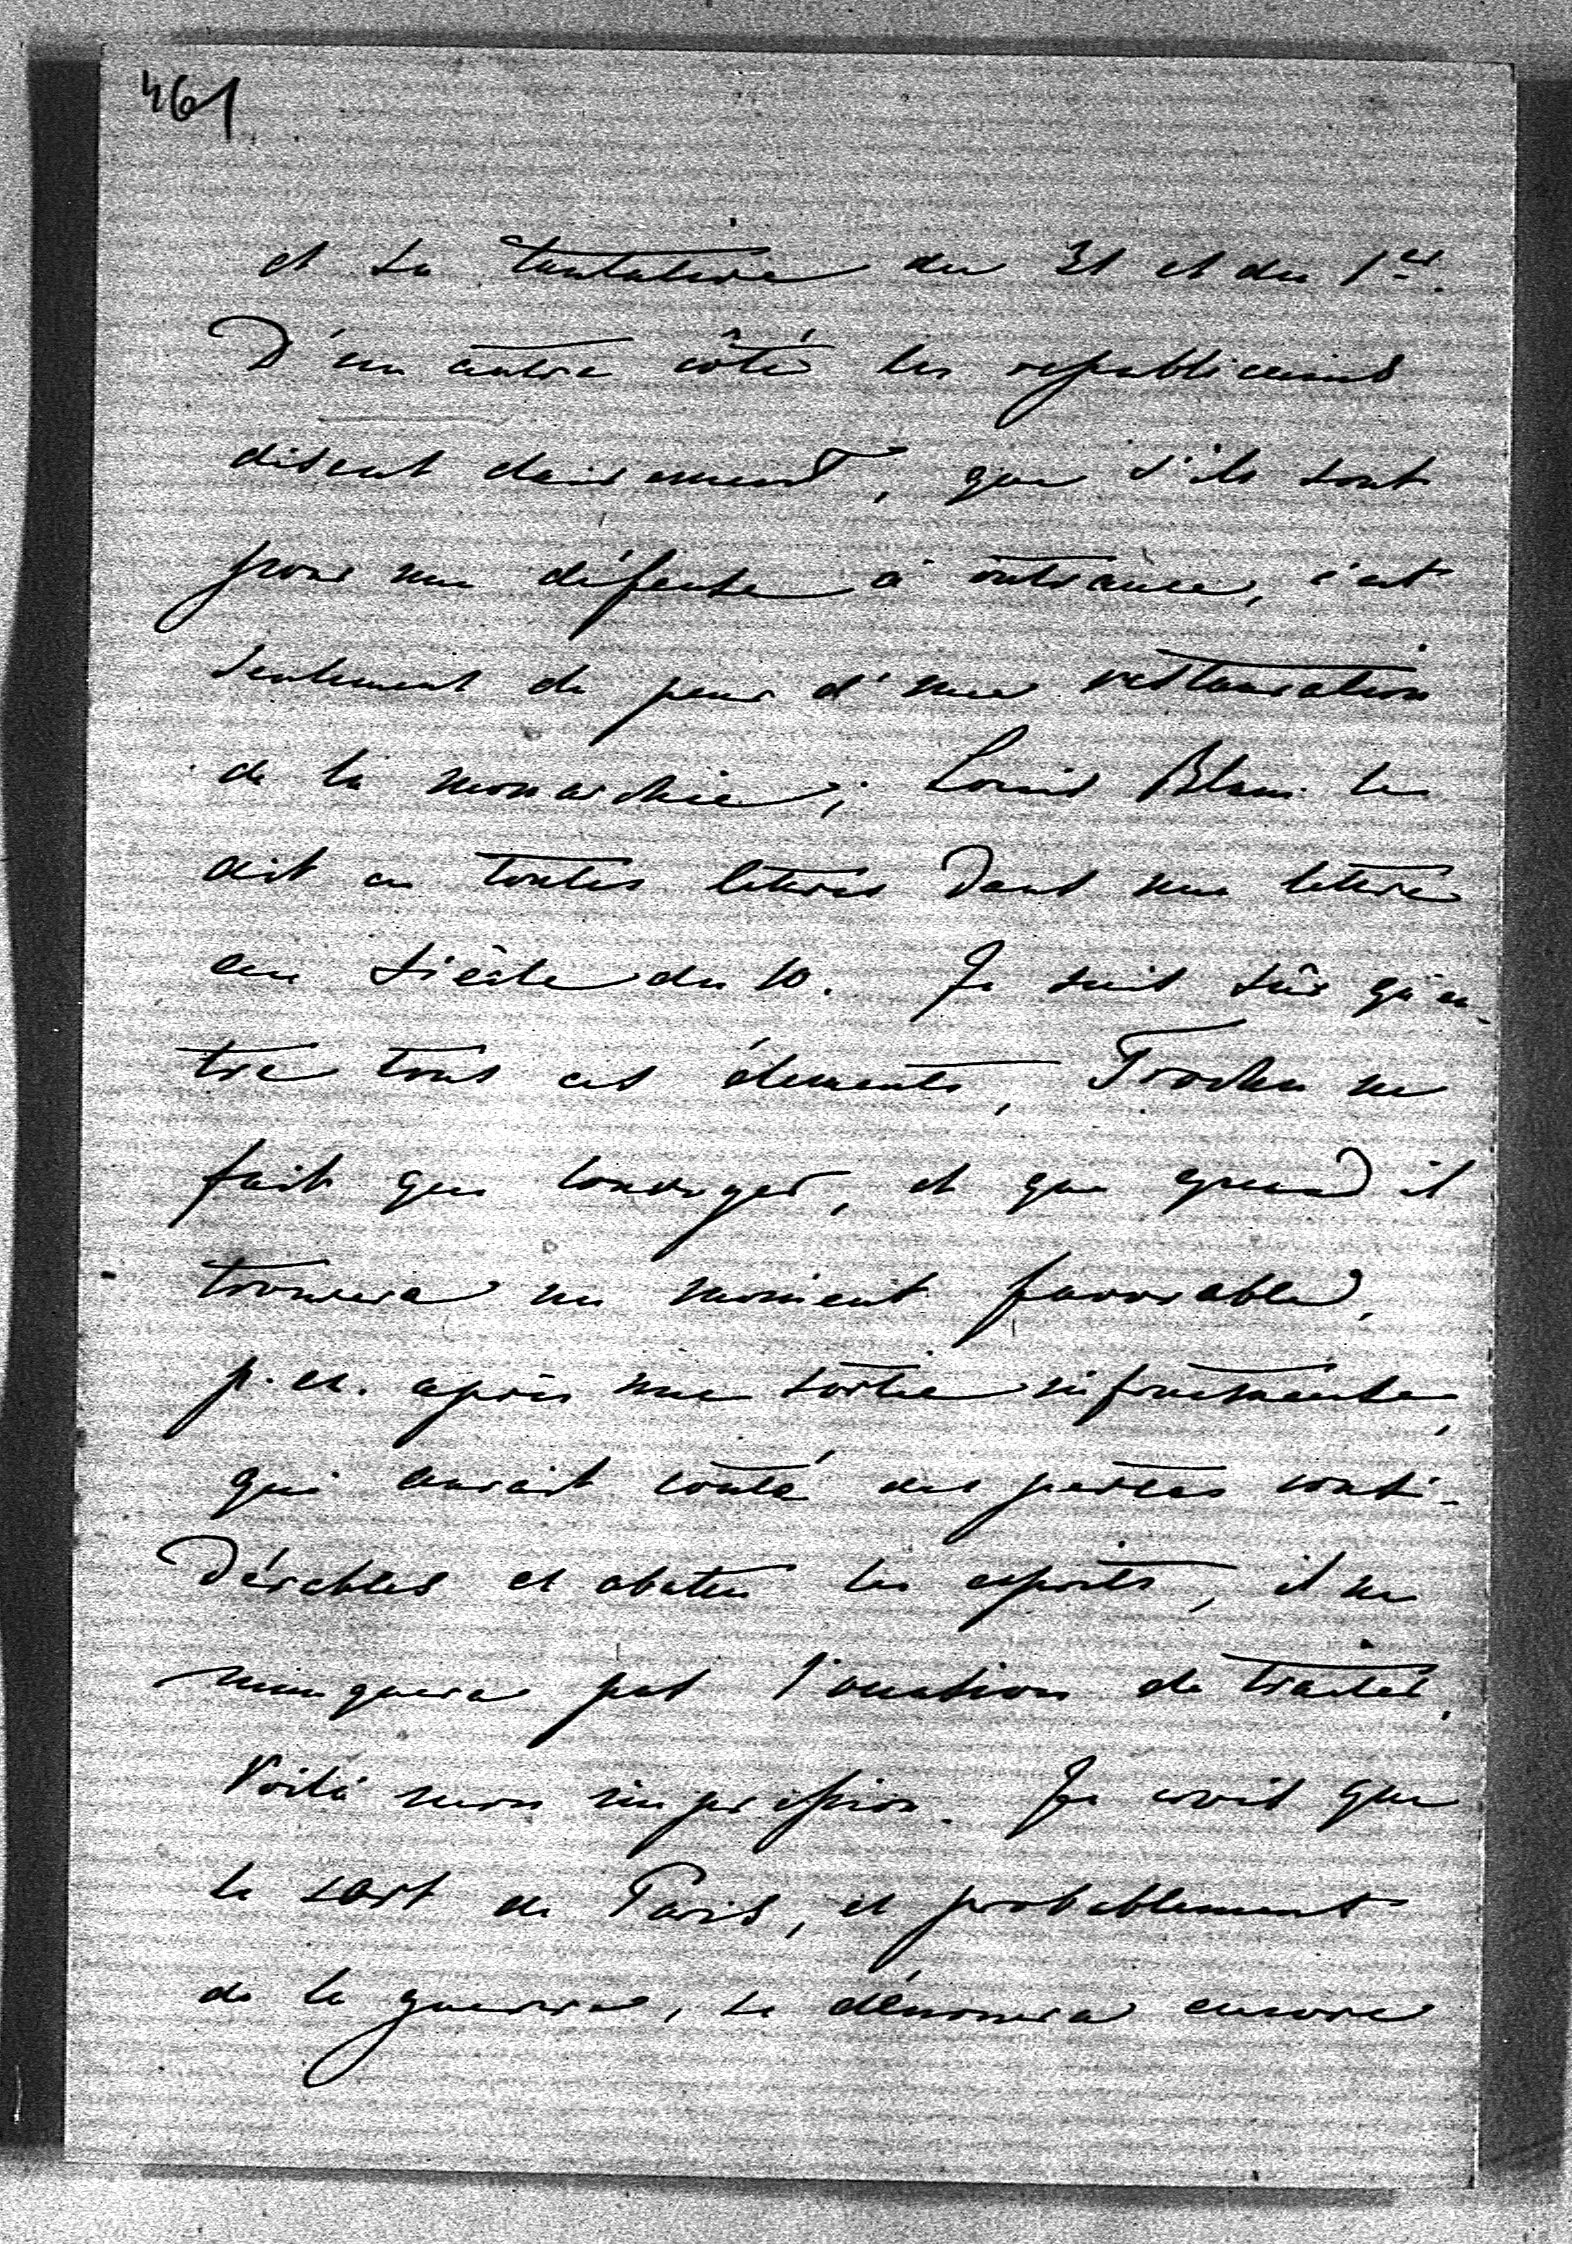 461
et sa tentative du 31 et du 1er.
D'un autre côté les republicains
disent clairement, que s'ils sont
pour une défense à outrance, c'est
seulement de peur d'une restauration
de la monarchie; Louis Blanc le
dit en toutes lettres dans une lettre
au Siècle du 10. Je suis sûr qu'en-
tre tous ces élements, Trochu ne
fait que louvoyer, et que quand il
trouvera un moment favorable,
p. ex. après une sortie infructueuse,
qui aurait couté des pertes consi-
dérables et abattu les esprits, il ne
manquera pas l'occasion de traiter.
Voilà mon impression. Je crois que
le sort de Paris, et probablement
de la guerre, se dénouera encore